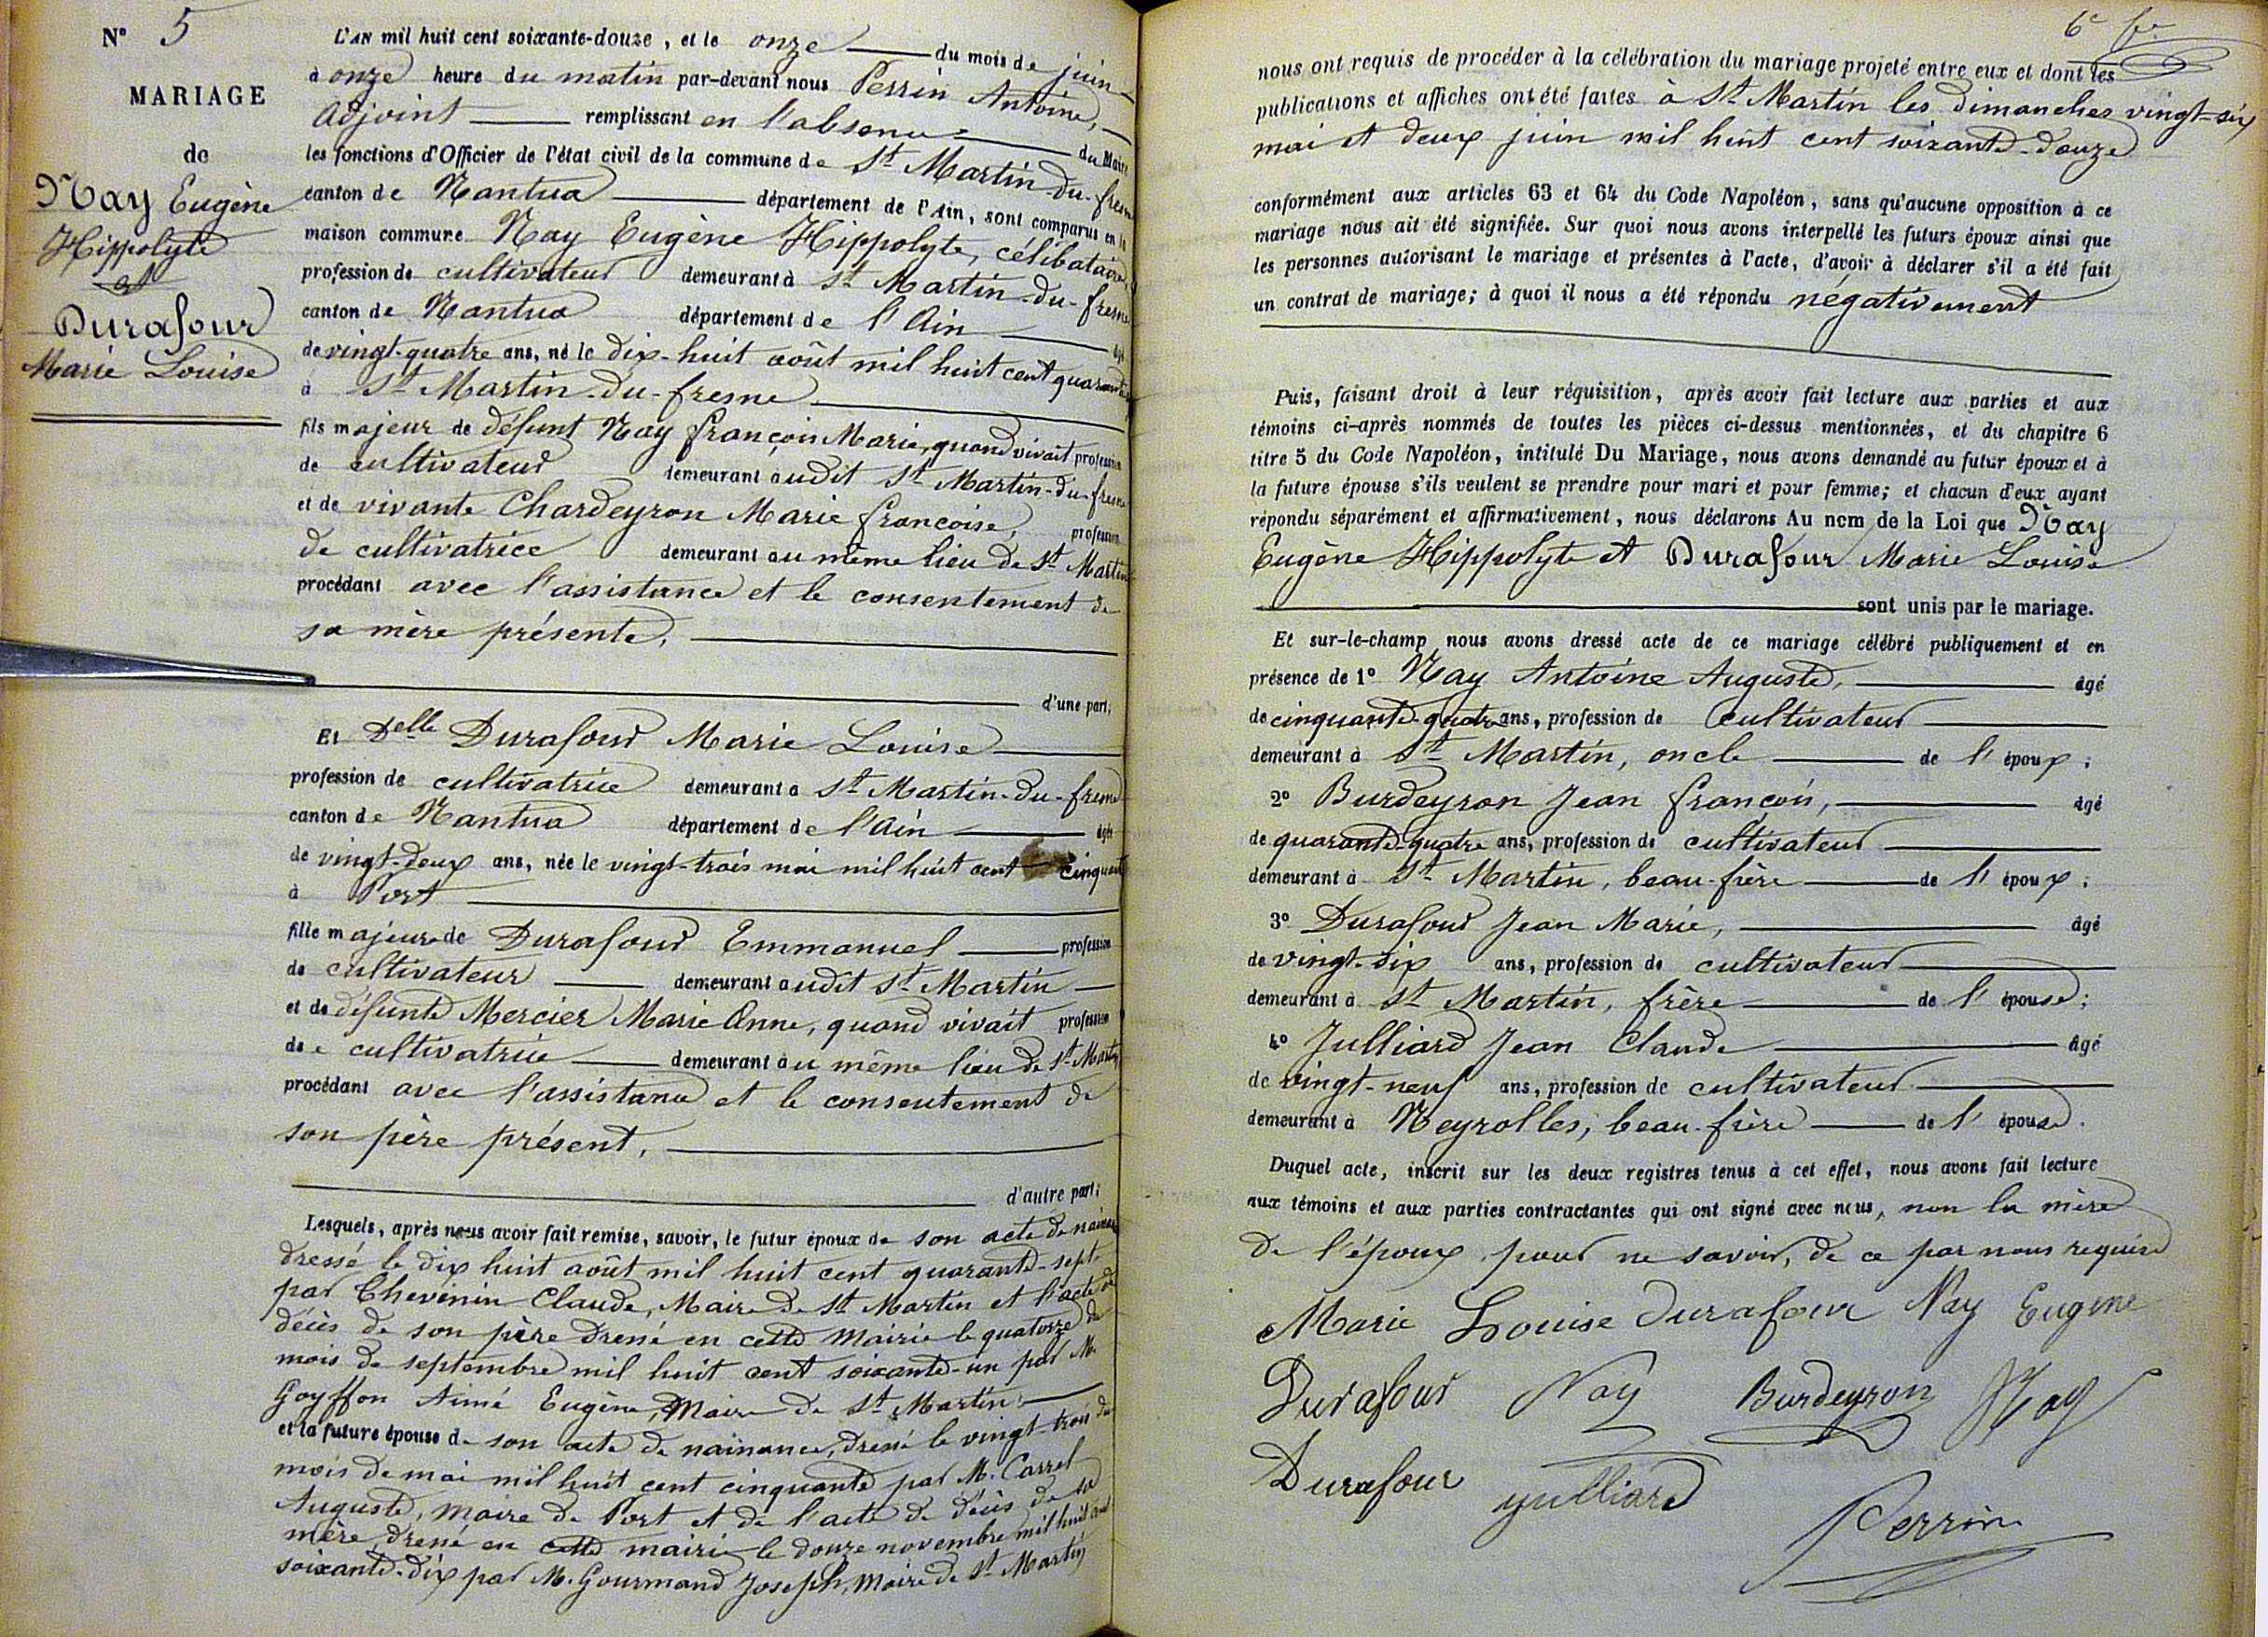 N° 5
MARIAGE
de
Nay Eugène
Hippolyte
et
Durafour
Marie Louise
L'AN mil huit cent soixante-douze, et le onze du mois de juin
à onze heure du matin par-devant nous Perrin Antoine,
Adjoint remplissant en l'absence du Maire
les fonctions d'Officier de l'état civil de la commune de St Martin-du-fresne
canton de Nantua département de l'Ain, sont comparus en la
maison commune Nay Eugène Hippolyte, célibataire
profession de cultivateur demeurant à St Martin-du-fresne
canton de Nantua département de l'Ain âgé
de vingt-quatre ans, né le dix-huit août mil huit cent quarante
à St Martin-du-fresne
fils majeur de défunt Nay françois Marie, quand vivait profession
de cultivateur demeurant audit St Martin-du-fresne
et de vivante Chardeyron Marie francoise, profession
de cultivatrice demeurant au même lieu de St Martin
procédant avec l'assistance et le consentement de
sa mère présente,
d'une part,
Et Delle Durafour Marie Louise
profession de cultivatrice demeurant à St Martin-du-fresne
canton de Nantua département de l'Ain âgée
de vingt-deux ans, née le vingt-trois mai mil huit cent cinquante
à Port
fille majeure de Durafour Emmanuel profession
de cultivateur demeurant audit St Martin
et de défunte Mercier Marie Anne, quand vivait profession
de cultivatrice demeurant au même lieu de St Martin
procédant avec l'assistance et le consentement de
son père présent,
d'autre part;
Lesquels, après nous avoir fait remise, savoir, le futur époux de son acte de naissance
dressé le dix huit août mil huit cent quarante-sept
par Chevinin Claude, Maire de St Martin et l'acte de
décès de son père dressé en cette Mairie le quatorze du
mois de septembre mil huit cent soixante-un par M.
Goyffon Aimé Eugène, Maire de St Martin
et la future épouse de son acte de naissance, dressé le vingt-trois du
mois de mai mil huit cent cinquante par M. Carrel
Auguste, maire de Port et de l'acte de décès de sa
mère, dressé en cette mairie le douze novembre mil huit cent
soixante-dix par M. Gourmand Joseph, Maire de St Martin
6e fe
nous ont requis de procéder à la célébration du mariage projeté entre eux et dont les
publications et affiches ont été faites à St Martin les dimanches vingt-six
mai et deux juin mil huit cent soixante-douze
conformément aux articles 63 et 64 du Code Napoléon, sans qu'aucune opposition à ce
mariage nous ait été signifiée. Sur quoi nous avons interpellé les futurs époux ainsi que
les personnes autorisant le mariage et présentes à l'acte, d'avoir à déclarer s'il a été fait
un contrat de mariage; à quoi il nous a été répondu négativement
Puis, faisant droit à leur réquisition, après avoir fait lecture aux parties et aux
témoins ci-après nommés de toutes les pièces ci-dessus mentionnées, et du chapitre 6
titre 5 du Code Napoléon, intitulé Du Mariage, nous avons demandé au futur époux et à
la future épouse s'ils veulent se prendre pour mari et pour femme; et chacun d'eux ayant
répondu séparément et affirmativement, nous déclarons Au nom de la Loi que Nay
Eugène Hippolyte et Durafour Marie Louise
sont unis par le mariage.
Et sur-le-champ nous avons dressé acte de ce mariage célébré publiquement et en
présence de 1° Nay Antoine Auguste, âgé
de cinquante-quatre ans, profession de cultivateur
demeurant à St Martin, oncle de l'époux;
2° Burdeyron Jean françois, âgé
de quarante-quatre ans, profession de cultivateur
demeurant à St Martin, beau-frère de l'époux;
3° Durafour Jean Marie, âgé
de vingt-six ans, profession de cultivateur
demeurant à St Martin, frère de l'épouse;
4° Julliard Jean Claude âgé
de vingt-neuf ans, profession de cultivateur
demeurant à Neyrolles, beau-frère de l'épouse.
Duquel acte, inscrit sur les deux registres tenus à cet effet, nous avons fait lecture
aux témoins et aux parties contractantes qui ont signé avec nous, non la mère
de l'époux pour ne savoir, de ce par nous requise
Marie Louise Durafour Nay Eugene
Durafour Nay Burdeyron Nay
Durafour Julliard
Perrin